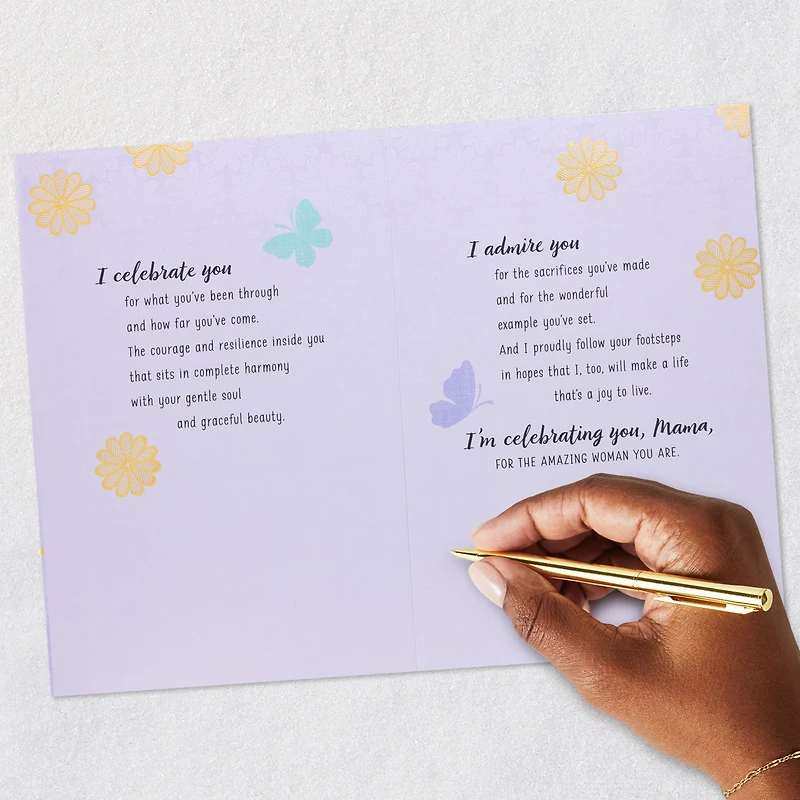 I celebrate you
for what you've been through
and how far you've come.
The courage and resilience inside you
that sits in complete harmony
with your gentle soul
and graceful beauty.
I admire you
for the sacrifices you've made
and for the wonderful
example you've set.
And I proudly follow your footsteps
in hopes that I, too, will make a life
that's a joy to live.
I'm celebrating you, Mama,
FOR THE AMAZING WOMAN YOU ARE.